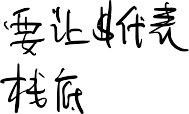 要让$代表
栈底